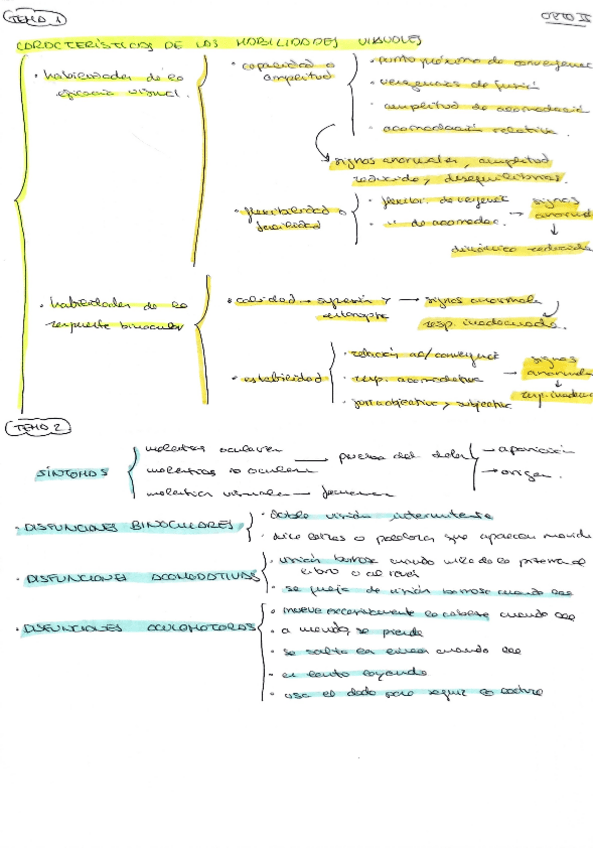 TEMA 1
OPTO II
CARACTERÍSTICAS DE LAS HABILIDADES VISUALES
· habilidades de la eficacia visual.
· capacidad o amplitud
· punto próximo de convergenc
· vergencias de fusión
· amplitud de acomodació
· acomodación relativa.
signos anormales, amplitud
reducida, desequilibrios.
· flexibilidad o facilidad
· flexibi. de vergenc
· " de acomodac.
→ signos anorma
↓
dinámica reducida
· habilidades de la respuesta binocular
· calidad → supresión y estereopsis
→ signos anormale
resp. inadecuada.
· estabilidad
· relación ac/convergenc
· resp. acomodativa
· foria objetiva y subjetiva
→ signos anormale
↓
resp. inadecu
TEMA 2
SÍNTOMAS
molestias oculares
molestias no oculares
molestias visuales →
→ aparición
→ origen.
· DISFUNCIONES BINOCULARES
· doble visión intermitente
· dice letras o palabras que aparecen movida
· DISFUNCIONES ACOMODATIVAS
· visión borrosa cuando mira de la pizarra al
libro o al revés
· se queja de visión borrosa cuando lee
· DISFUNCIONES OCULOMOTORAS
· mueve excesivamente la cabeza cuando lee
· a menudo, se pierde
· se salta en líneas cuando lee
· es lento leyendo
· usa el dedo para seguir la lectura